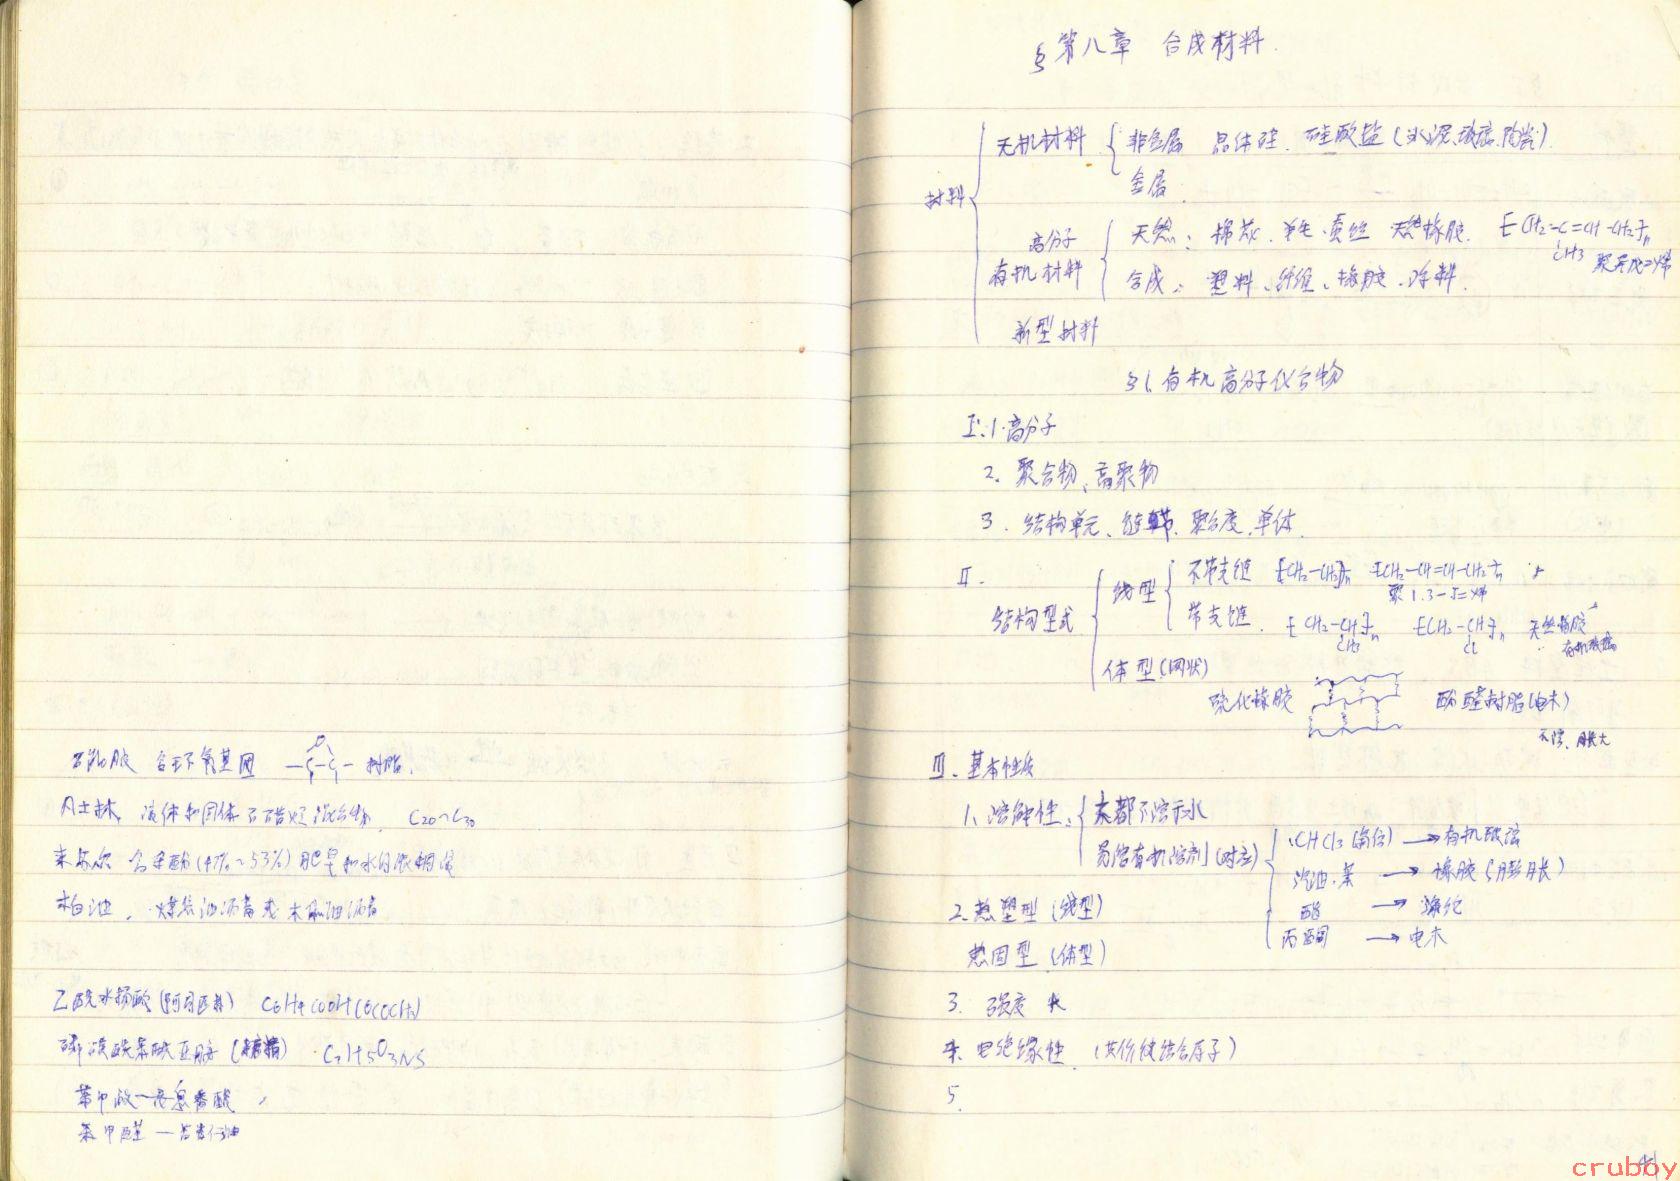 万能胶 含环氧基团 —C—C— 树脂.
O
凡士林, 液体和固体石蜡烃混合物. C20~C30
来苏尔 含甲酚(47%~53%)肥皂和水的浓稠液
柏油, 煤焦油沥青或木焦油沥青
乙酰水杨酸(阿司匹林) C6H4COOH(OCOCH3)
邻磺酰苯酰亚胺(糖精) C7H5O3NS
苯甲酸—安息香酸
苯甲醛—苦杏仁油
§第八章 合成材料.
材料
无机材料 非金属 晶体硅. 硅酸盐(水泥、玻璃、陶瓷).
金属.
高分子有机材料
天然: 棉花. 羊毛. 蚕丝 天然橡胶. [CH2-C=CH-CH2]n
CH3 聚异戊二烯
合成: 塑料、纤维、橡胶、涂料.
新型材料
§1.有机高分子化合物
I.1.高分子
2. 聚合物、高聚物
3. 结构单元、链节、聚合度、单体.
II.
结构型式
线型 不带支链 [CH2-CH2]n [CH2-CH=CH-CH2]n
聚1.3-丁二烯
带支链. [CH2-CH]n [CH2-CH]n 天然橡胶
CH3 Cl 有机玻璃
体型(网状)
硫化橡胶 酚醛树脂(电木)
不溶. 胀大
III. 基本性质
1. 溶解性: 大都不溶于水
易溶有机溶剂(对应)
CHCl3(氯仿) → 有机玻璃
汽油.苯 → 橡胶(膨胀)
酚 → 涤纶
丙酮 → 电木
2. 热塑型(线型)
热固型(体型)
3. 强度大
4. 电绝缘性. (共价键结合原子)
5.
41
cruboy